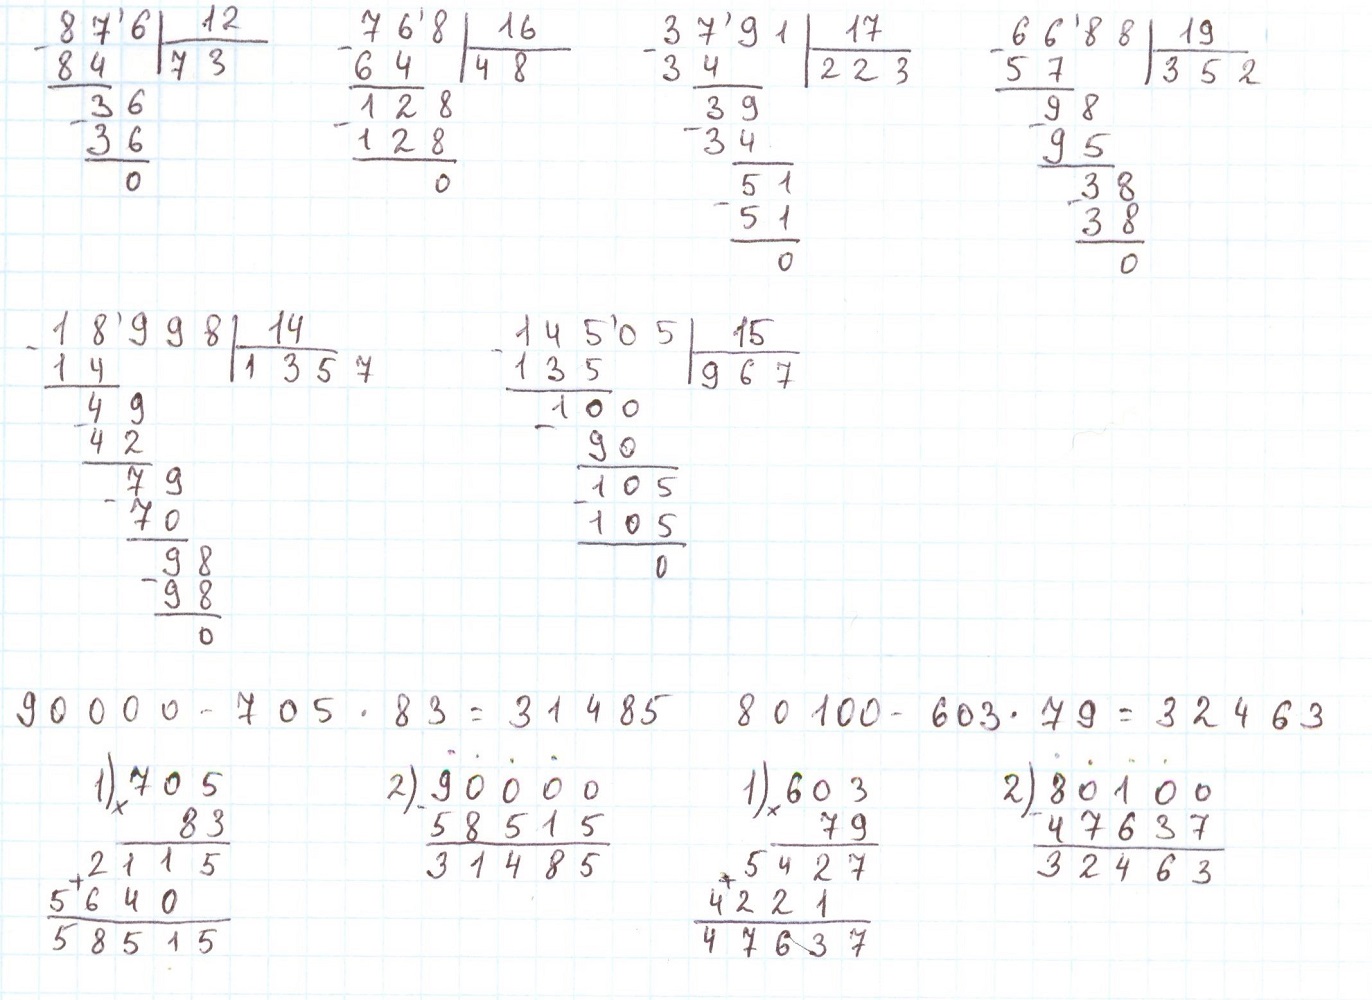 87'6 12
84 73
36
36
0
76'8 16
64 48
128
128
0
37'91 17
34 223
39
34
51
51
0
66'88 19
57 352
98
95
38
38
0
18'998 14
14 1357
49
42
79
70
98
98
0
145'05 15
135 967
100
90
105
105
0
90000 - 705 · 83 = 31485
1) 705
× 83
2115
+ 5640
58515
2) 90000
- 58515
31485
80100 - 603 · 79 = 32463
1) 603
× 79
5427
+ 4221
47637
2) 80100
- 47637
32463